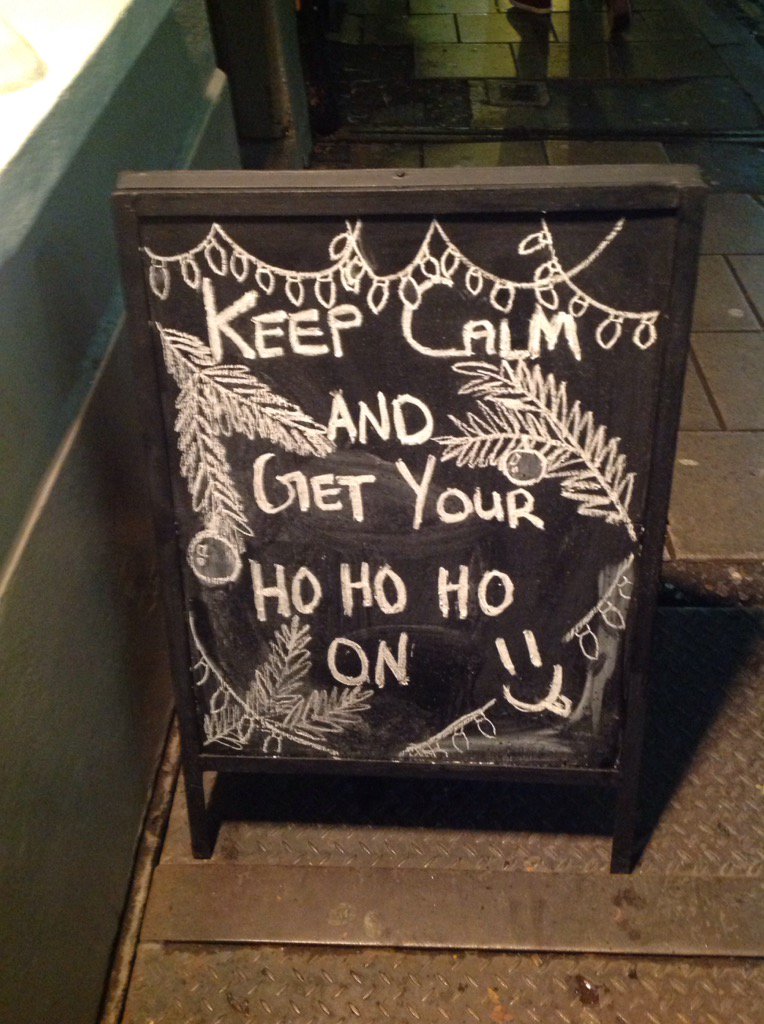 KEEP CALM
AND
GET YOUR
HO HO HO
ON